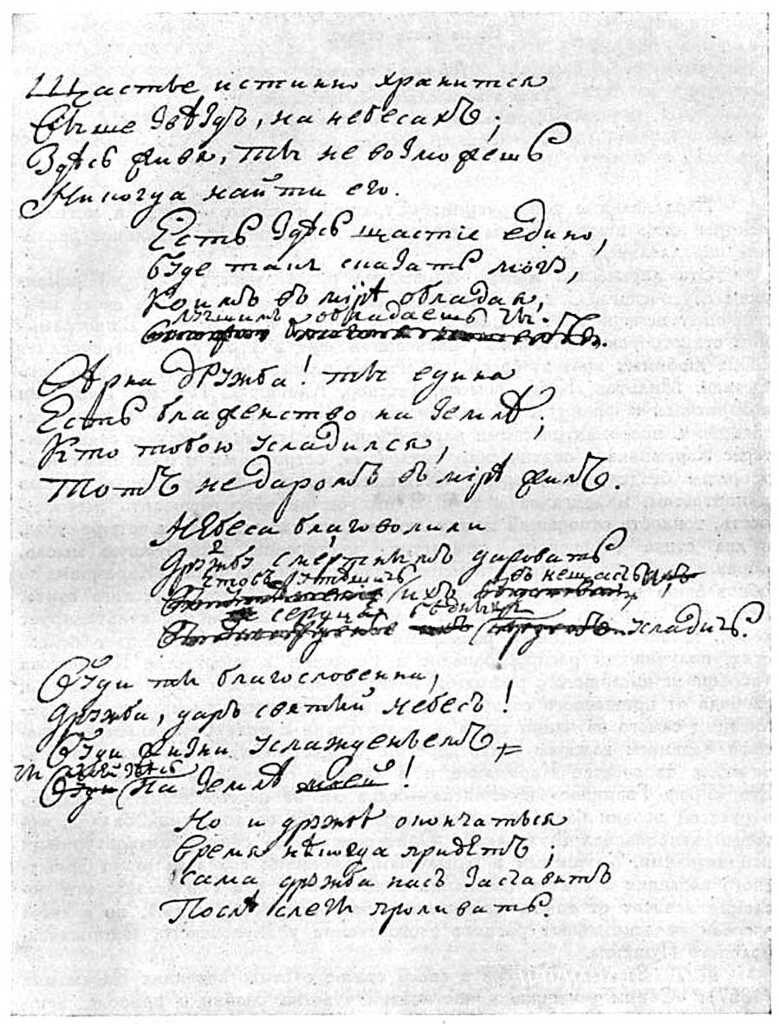 Щастье истинно хранится
Выше звѣздъ, на небесахъ;
Здѣсь живя, ты не возможешь
Никогда найти его.
Есть здѣсь щастіе едино,
буде такъ сказать могу,
Коимъ въ мірѣ обладая,
Лучшимъ обладаешь ты.
Вѣрна дружба! ты едина
Есть блаженство на землѣ;
Кто тобою усладился,
Тотъ недаромъ въ мірѣ жилъ.
Небеса благоволили
Дружбу смертнымъ даровать
Чтобъ утѣшить ихъ въ нещастьи,
сердца бѣдныхъ усладить.
Буди ты благословенна,
Дружба, даръ святый небесъ!
Буди жизни услажденьемъ
ты моей здѣсь на землѣ!
Но и дружбѣ окончаться
Время нѣкогда придетъ;
Сама дружба насъ заставитъ
Послѣ слезы проливать.